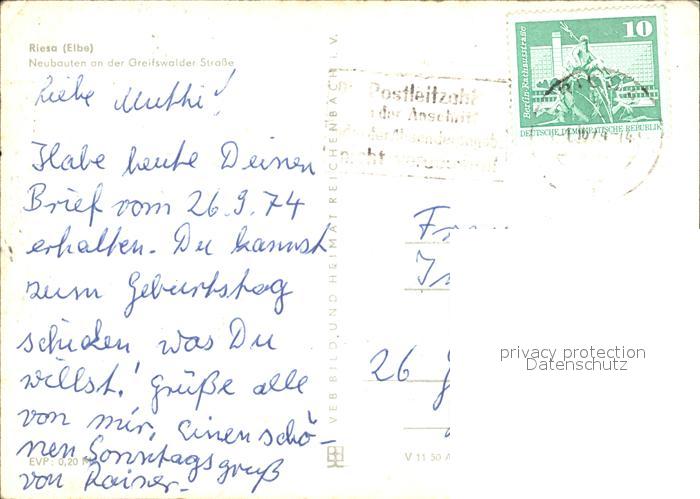 Riesa (Elbe)
Neubauten an der Greifswalder Straße
Liebe Mutti!
Habe heute Deinen
Brief vom 26.9.74
erhalten. Du kannst
zum Geburtstag
schicken was Du
willst! Grüße alle
von mir, einen schö-
nen Sonntagsgruß
von Rainer.
EVP: 0,20 M
VEB BILD UND HEIMAT REICHENBACH I. V.
V 11 50 A
Postleitzahl
in der Anschrift
nicht vergessen!
10
Berlin-Rathausstraße
DEUTSCHE DEMOKRATISCHE REPUBLIK
26
privacy protection
Datenschutz